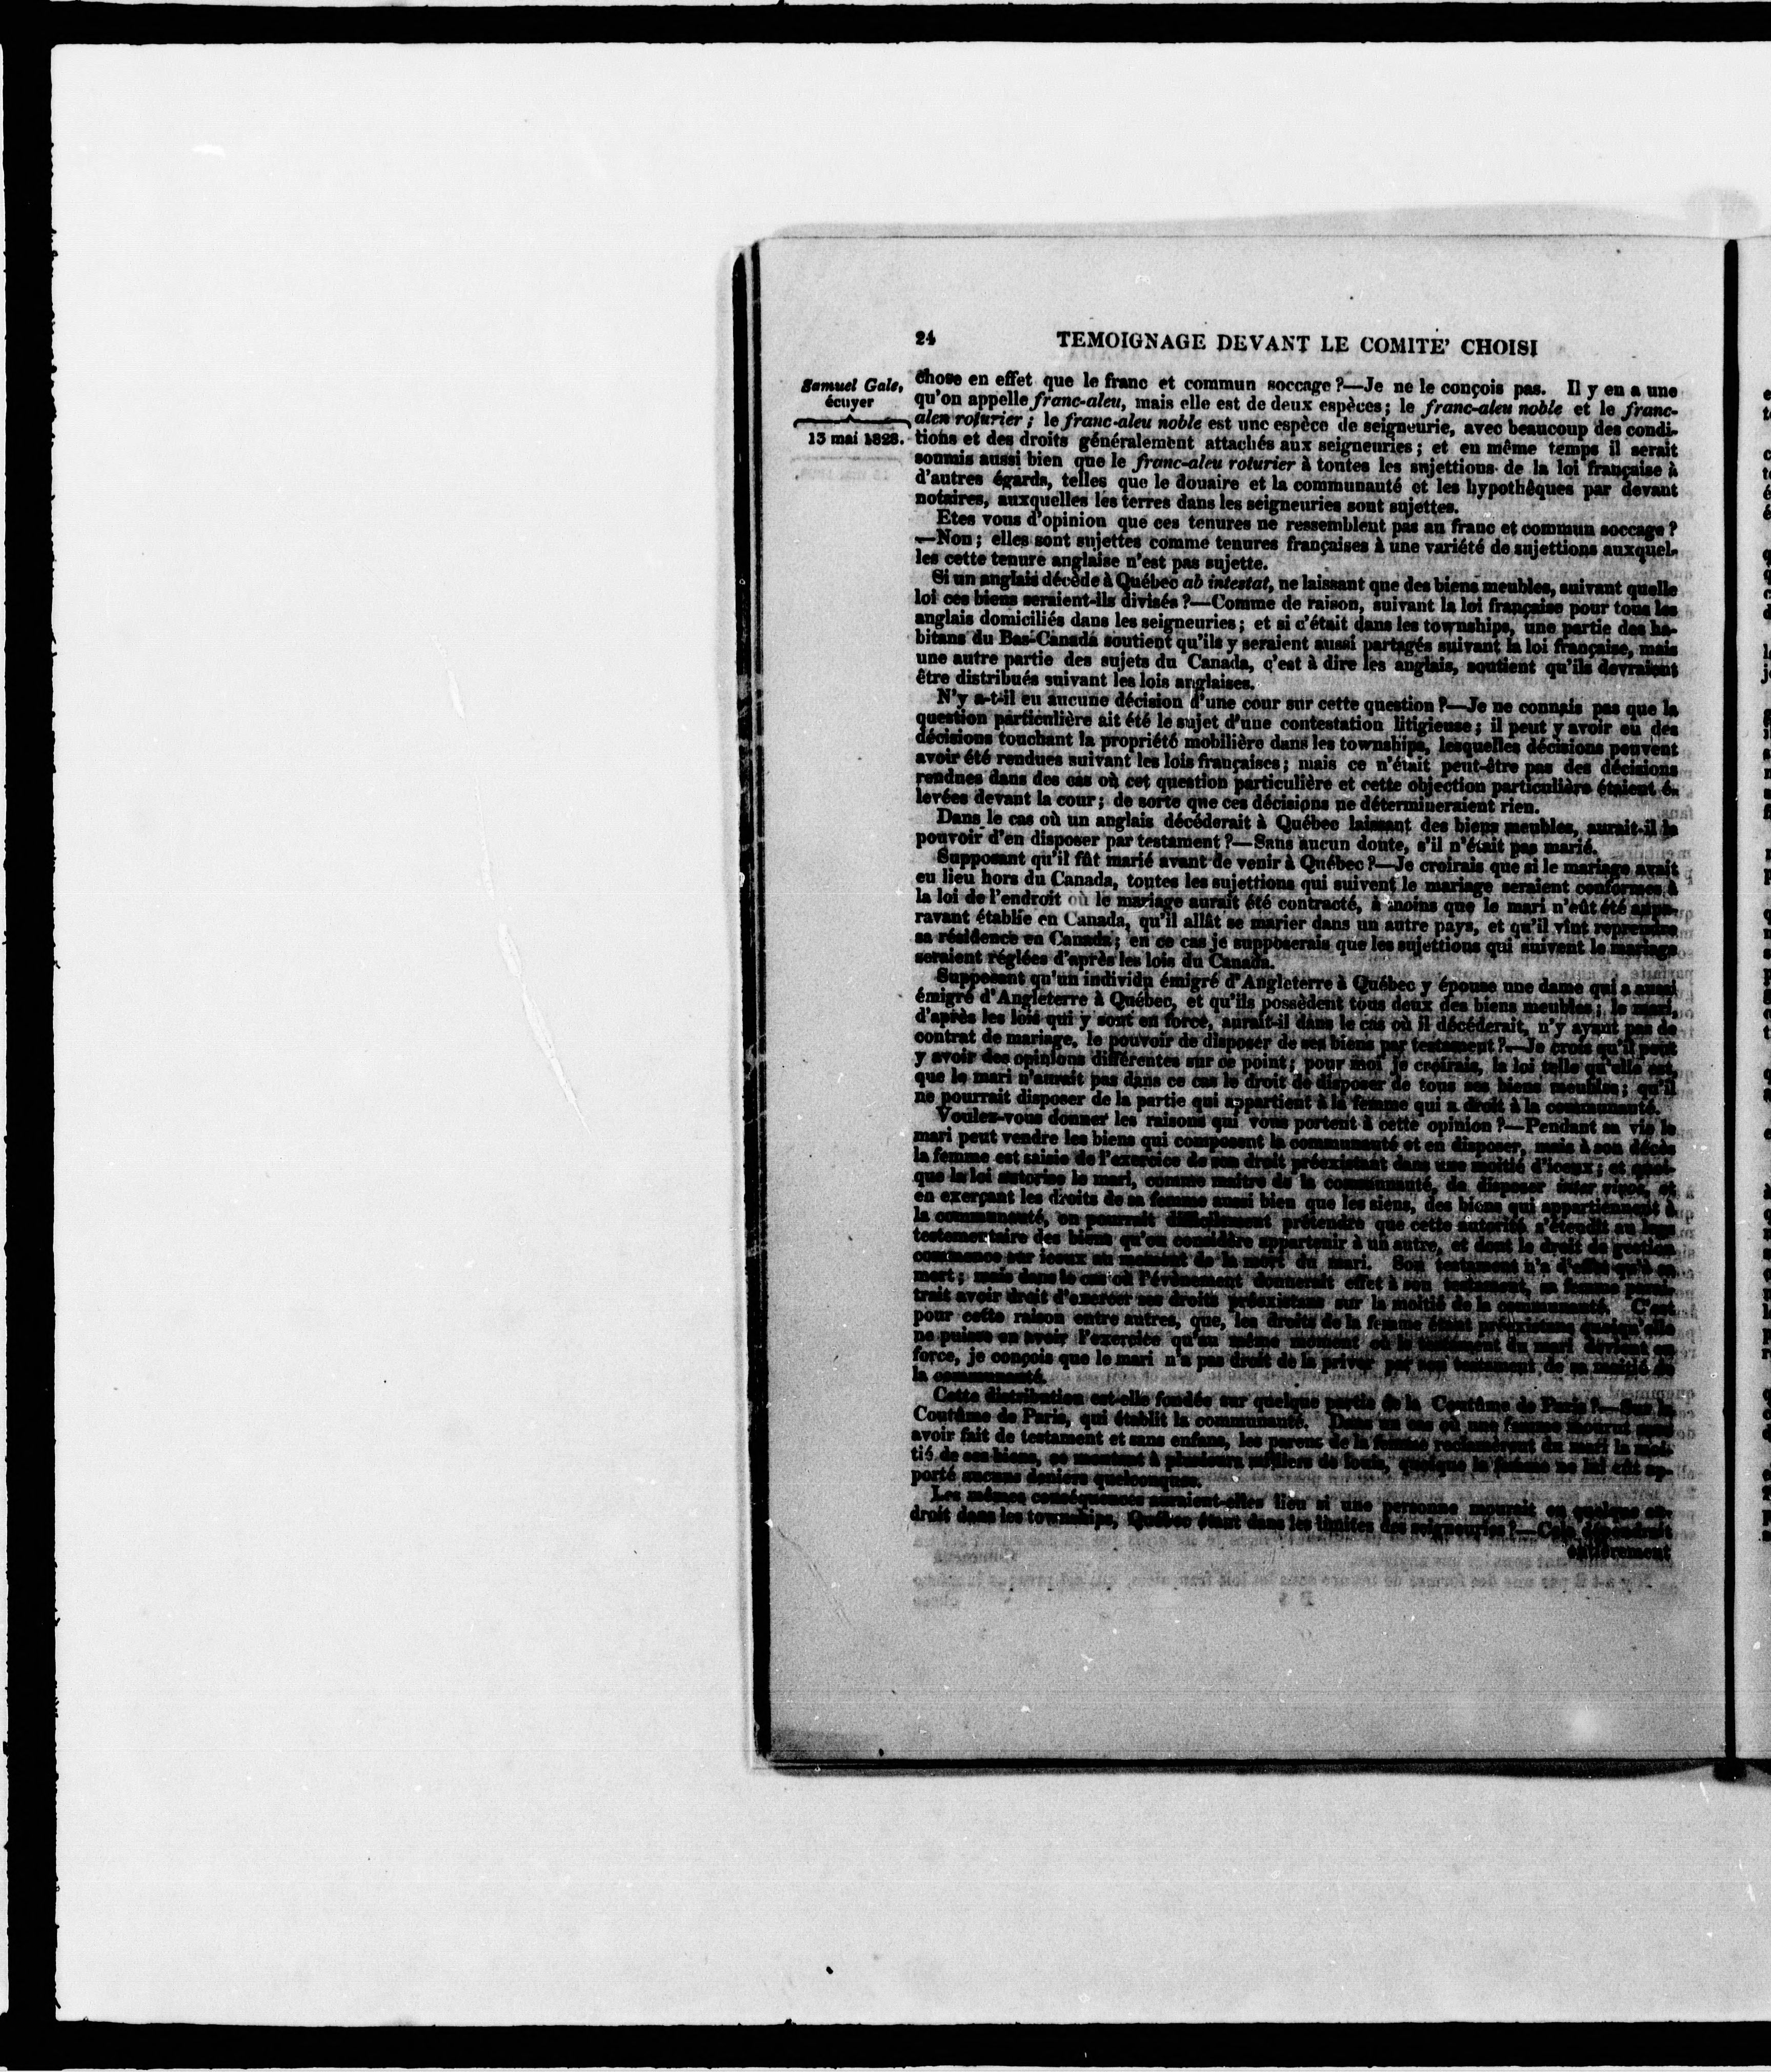 24 TEMOIGNAGE DEVANT LE COMITE' CHOISI
Samuel Gale,
écuyer
13 mai 1828.
chose en effet que le franc et commun soccage ?—Je ne le conçois pas. Il y en a une
qu'on appelle franc-aleu, mais elle est de deux espèces; le franc-aleu noble et le franc-
aleu roturier ; le franc-aleu noble est une espèce de seigneurie, avec beaucoup des condi-
tions et des droits généralement attachés aux seigneuries ; et en même temps il serait
soumis aussi bien que le franc-aleu roturier à toutes les sujettions de la loi française à
d'autres égards, telles que le douaire et la communauté et les hypothêques par devant
notaires, auxquelles les terres dans les seigneuries sont sujettes.
Etes vous d'opinion que ces tenures ne ressemblent pas au franc et commun soccage ?
—Non ; elles sont sujettes comme tenures françaises à une variété de sujettions auxquel-
les cette tenure anglaise n'est pas sujette.
Si un anglais décède à Québec ab intestat, ne laissant que des biens meubles, suivant quelle
loi ces biens seraient-ils divisés ?—Comme de raison, suivant la loi française pour tous les
anglais domiciliés dans les seigneuries ; et si c'était dans les townships, une partie des ha-
bitans du Bas-Canada soutient qu'ils y seraient aussi partagés suivant la loi française, mais
une autre partie des sujets du Canada, c'est à dire les anglais, soutient qu'ils devraient
être distribués suivant les lois anglaises.
N'y a-t-il eu aucune décision d'une cour sur cette question ?—Je ne connais pas que la
question particulière ait été le sujet d'une contestation litigieuse ; il peut y avoir eu des
décisions touchant la propriété mobilière dans les townships, lesquelles décisions peuvent
avoir été rendues suivant les lois françaises ; mais ce n'était peut-être pas des décisions
rendues dans des cas où cet question particulière et cette objection particulière étaient é-
levées devant la cour ; de sorte que ces décisions ne détermineraient rien.
Dans le cas où un anglais décéderait à Québec laissant des biens meubles, aurait-il le
pouvoir d'en disposer par testament ?—Sans aucun doute, s'il n'était pas marié.
Supposant qu'il fût marié avant de venir à Québec ?—Je croirais que si le mariage avait
eu lieu hors du Canada, toutes les sujettions qui suivent le mariage seraient conformes à
la loi de l'endroit où le mariage aurait été contracté, à moins que le mari n'eût été aupa-
ravant établie en Canada, qu'il allât se marier dans un autre pays, et qu'il vint reprendre
sa résidence en Canada ; en ce cas je supposerais que les sujettions qui suivent le mariage
seraient réglées d'après les lois du Canada.
Supposant qu'un individu émigré d'Angleterre à Québec y épouse une dame qui a aussi
émigré d'Angleterre à Québec, et qu'ils possèdent tous deux des biens meubles ; le mari,
d'après les lois qui y sont en force, aurait-il dans le cas où il décéderait, n'y ayant pas de
contrat de mariage, le pouvoir de disposer de ses biens par testament ?—Je crois qu'il peut
y avoir des opinions différentes sur ce point ; pour moi je croirais, la loi telle qu'elle est,
que le mari n'aurait pas dans ce cas le droit de disposer de tous ses biens meubles ; qu'il
ne pourrait disposer de la partie qui appartient à la femme qui a droit à la communauté.
Voulez-vous donner les raisons qui vous portent à cette opinion ?—Pendant sa vie le
mari peut vendre les biens qui composent la communauté et en disposer, mais à son décès
la femme est saisie de l'exercice de son droit préexistant dans une moitié d'iceux ; et
que la loi autorise le mari, comme maître de la communauté, de disposer inter vivos, et
en exerçant les droits de sa femme aussi bien que les siens, des biens qui appartiennent à
la communauté, on pourrait difficilement prétendre que cette autorité s'étendit au legs
testamentaire des biens qu'on considère appartenir à un autre, et dont le droit de gestion
commence sur iceux au moment de la mort du mari. Son testament n'a d'effet qu'à sa
mort ; mais dans le cas où l'événement donnerait effet à son testament, sa femme
trait avoir droit d'exercer ses droits préexistans sur la moitié de la communauté. C'est
pour cette raison entre autres, que, les droits de la femme étant préexistans quoiqu'elle
ne puisse en avoir l'exercice qu'au même moment où le testament du mari devient en
force, je conçois que le mari n'a pas droit de la priver par son testament de sa moitié de
la communauté.
Cette distribution est-elle fondée sur quelque partie de la Coutûme de Paris ?—Sur la
Coutûme de Paris, qui établit la communauté. Dans un cas où une femme mourut sans
avoir fait de testament et sans enfans, les parens de la femme réclamèrent du mari la moi-
tié de ses biens, se montant à plusieurs milliers de louis, quoique la femme ne lui eût ap-
porté aucuns deniers quelconques.
Les mêmes conséquences auraient-elles lieu si une personne mourait en quelque en-
droit dans les townships, Québec étant dans les limites des seigneuries ?—Cela dépendrait
entièrement